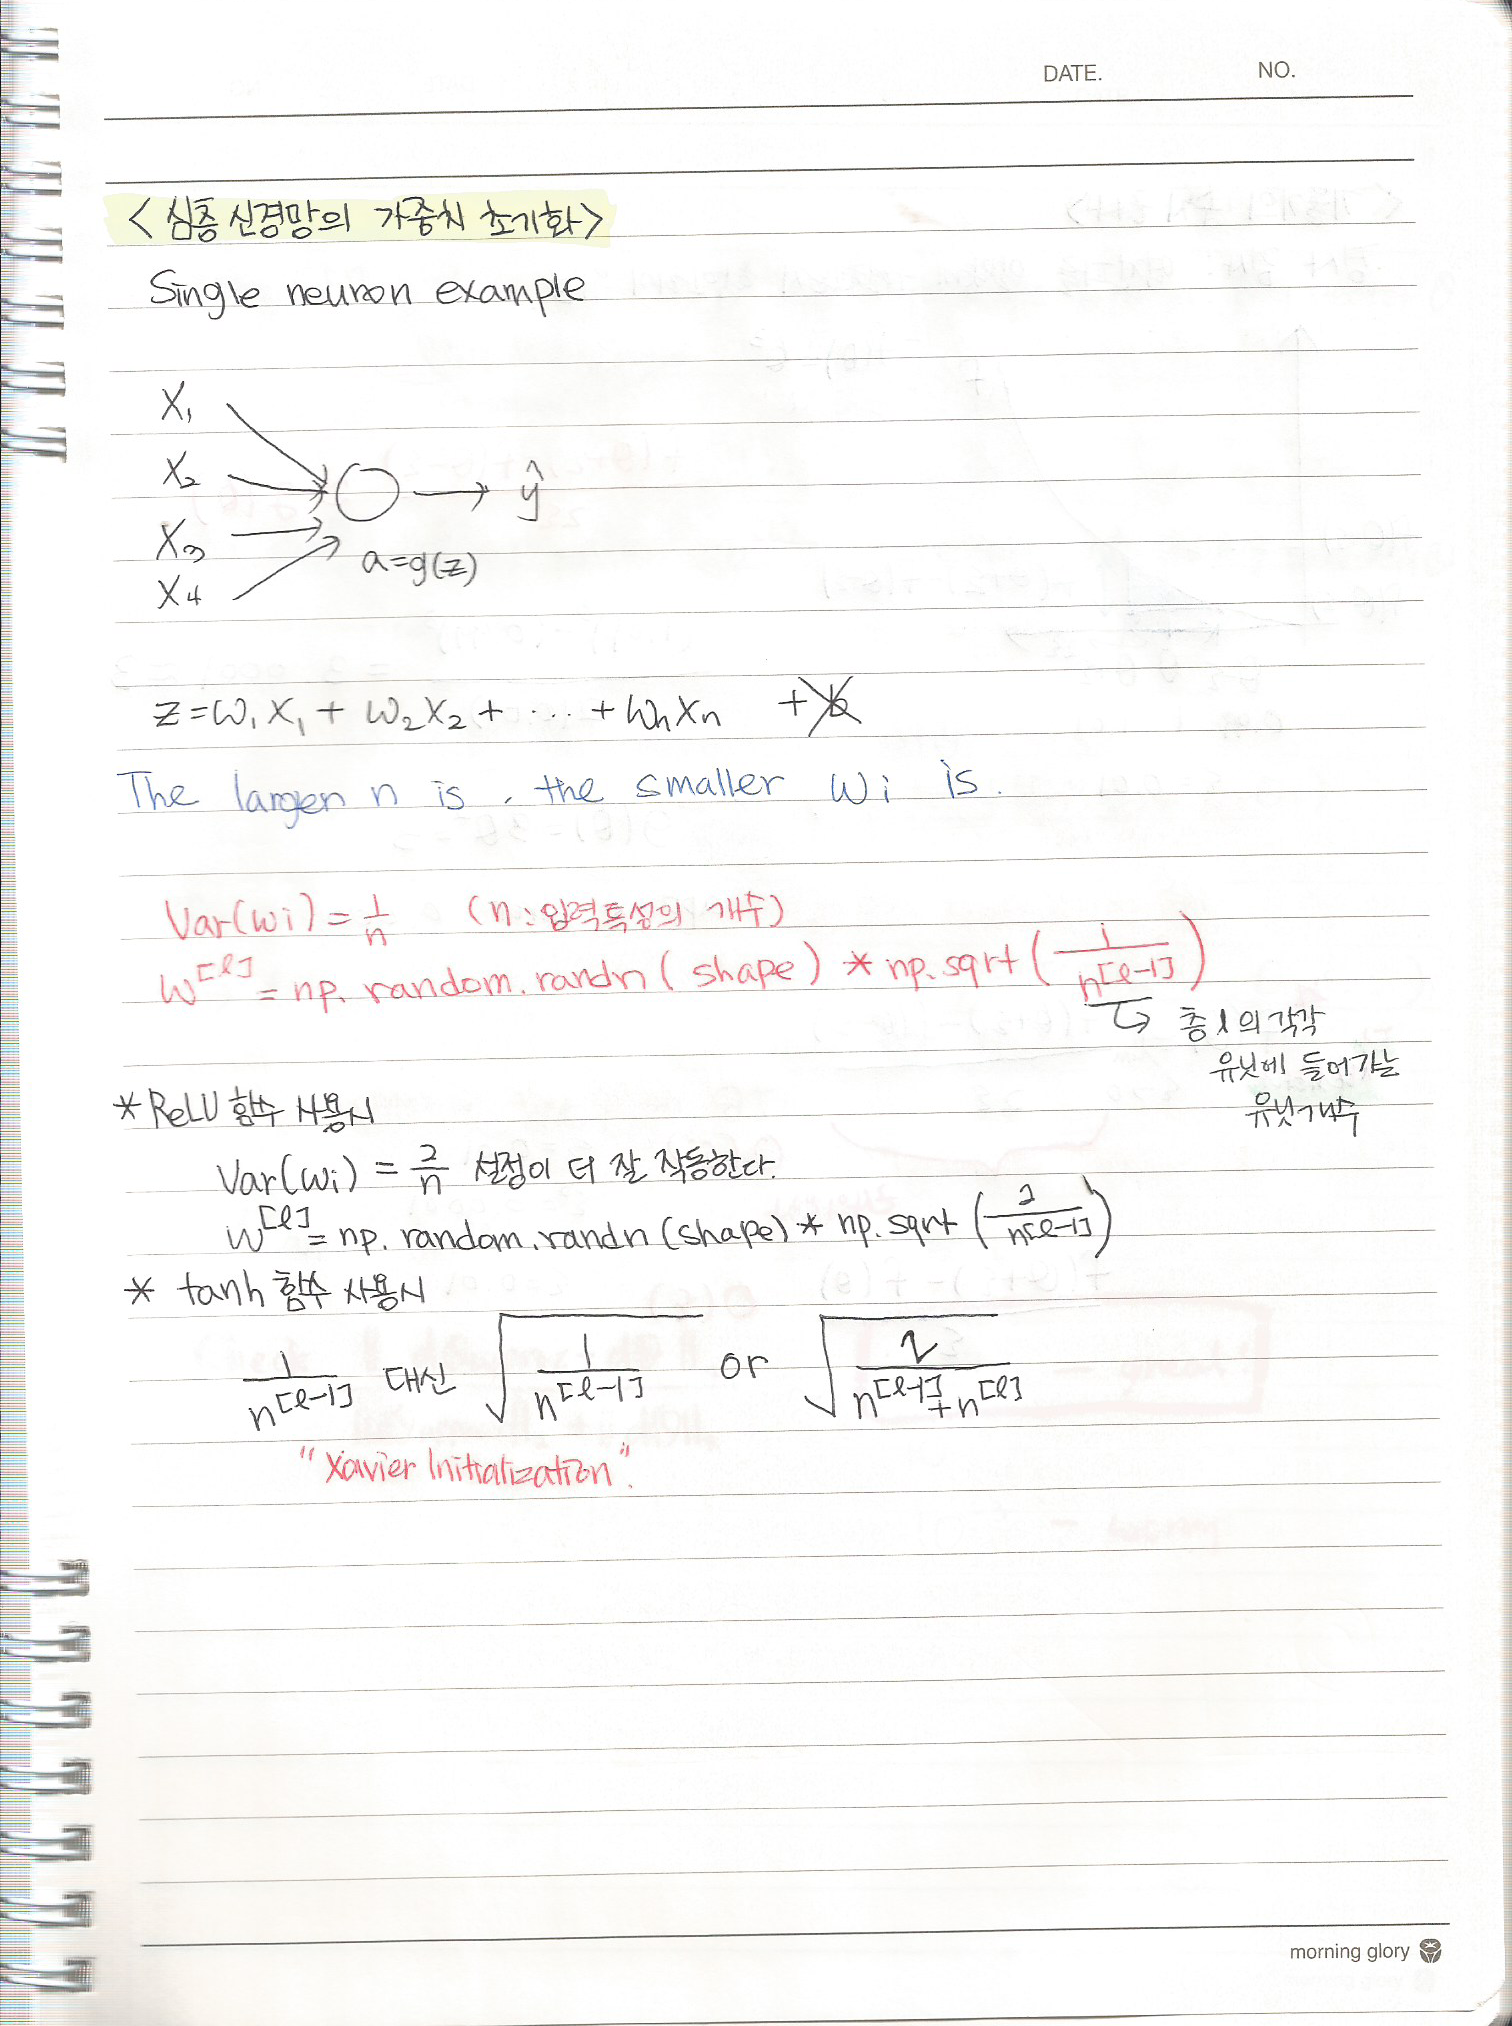 DATE. NO.
<심층 신경망의 가중치 초기화>
Single neuron example
X₁
X₂
X₃
X₄
ŷ
a=g(z)
z=w₁x₁ + w₂x₂ + ... + wₙxₙ + b
The larger n is, the smaller wi is.
Var(wi) = 1/n (n:입력특성의 개수)
w^[l] = np.random.randn(shape) * np.sqrt(1/n^[l-1])
층 l의 각각
유닛에 들어가는
유닛개수
* ReLU 함수 사용시
Var(wi) = 2/n 설정이 더 잘 작동한다.
w^[l] = np.random.randn(shape) * np.sqrt(2/n^[l-1])
* tanh 함수 사용시
1/n^[l-1] 대신 √(1/n^[l-1]) or √(2/(n^[l-1]+n^[l]))
"Xavier Initialization".
morning glory